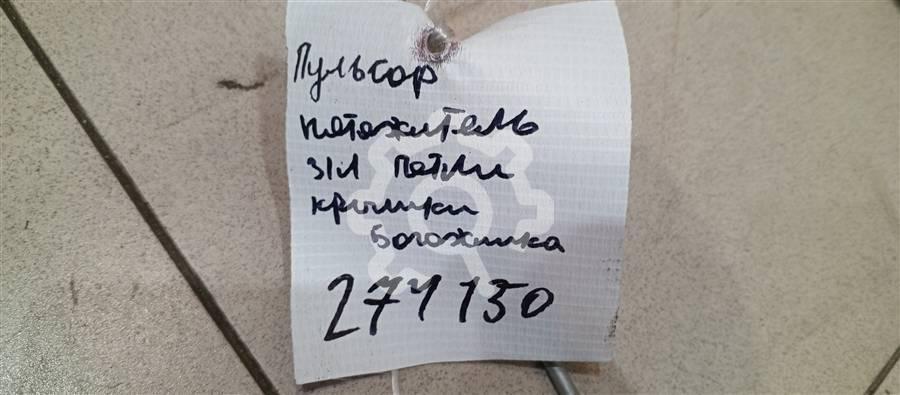 Пульсар
натяжитель
з/л петли
крышки
богожника
274150